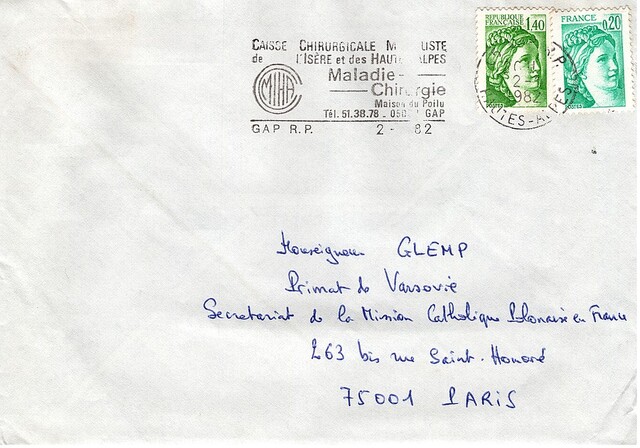 CAISSE CHIRURGICALE M   LISTE
de l'ISÈRE et des HAUTES ALPES
Maladie-
Chirurgie
Maison du Poilu
Tél. 51.38.78 - GAP
GAP R.P. 2 - 82
MIHA
REPUBLIQUE FRANÇAISE 1,40
FRANCE 0,20
R.P.
2
1982
HAUTES-ALPES
Monseigneur GLEMP
Primat de Varsovie
Secretariat de la Mission Catholique Polonaise en France
263 bis rue Saint-Honoré
75001 PARIS